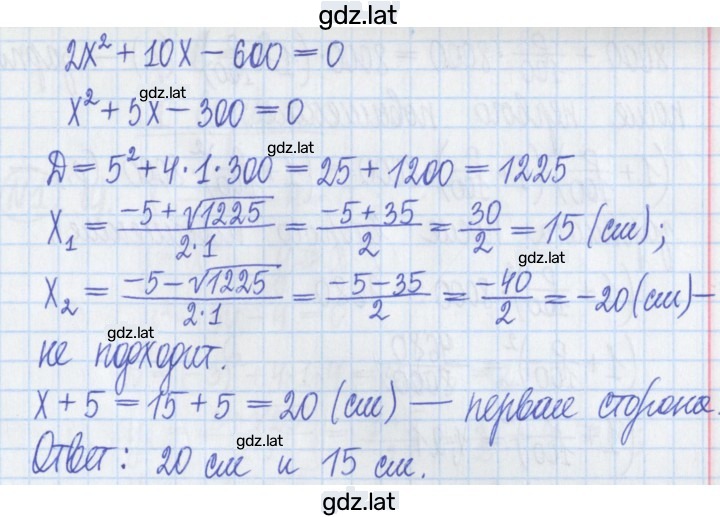 gdz.lat
2x² + 10x − 600 = 0
gdz.lat
x² + 5x − 300 = 0
gdz.lat
D = 5² + 4 · 1 · 300 = 25 + 1200 = 1225
x₁ = (−5 + √1225)/(2·1) = (−5 + 35)/2 = 30/2 = 15 (см);
gdz.lat
gdz.lat
x₂ = (−5 − √1225)/(2·1) = (−5 − 35)/2 = −40/2 = −20 (см) —
gdz.lat
не подходит.
x + 5 = 15 + 5 = 20 (см) — первая сторона.
gdz.lat
Ответ: 20 см и 15 см.
gdz.lat